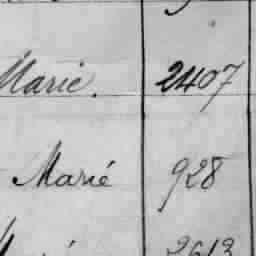 Marie. 2407
Marié 928
2613